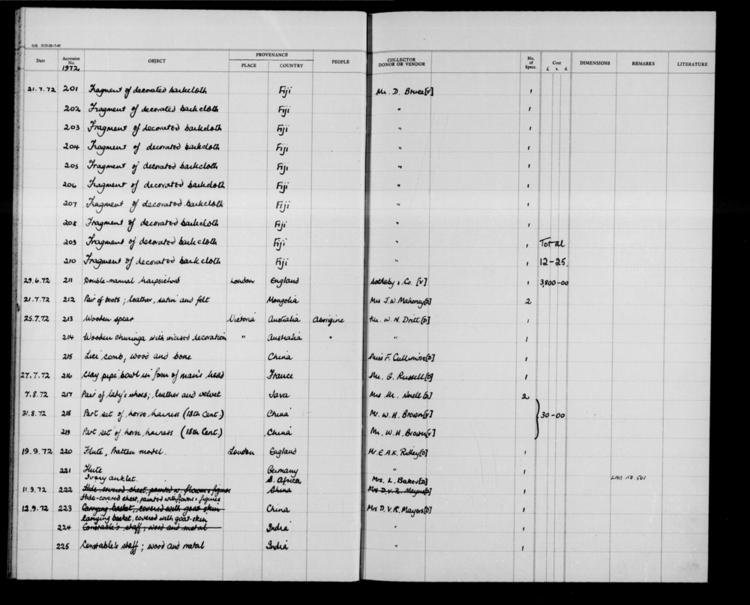 Date Accession No. OBJECT PROVENANCE PLACE COUNTRY PEOPLE COLLECTOR DONOR OR VENDOR No. of Specs. Cost £ s. d. DIMENSIONS REMARKS LITERATURE
1972
21.7.72 201 Fragment of decorated barkcloth Fiji Mr. D. Bruce [V] 1
202 Fragment of decorated barkcloth Fiji " 1
203 Fragment of decorated barkcloth Fiji " 1
204 Fragment of decorated barkcloth Fiji " 1
205 Fragment of decorated barkcloth Fiji " 1
206 Fragment of decorated barkcloth Fiji " 1
207 Fragment of decorated barkcloth Fiji " 1
208 Fragment of decorated barkcloth Fiji " 1
209 Fragment of decorated barkcloth Fiji " 1 Total
210 Fragment of decorated barkcloth Fiji " 1 12-25.
29.6.72 211 Double-manual harpsichord London England Sotheby & Co. [V] 1 3,800-00
21.7.72 212 Pair of boots; leather, satin and felt Mongolia Mrs J.W. Mahoney [D] 2
25.7.72 213 Wooden spear Victoria Australia Aborigine W. H. [D] 1
214 Wooden churinga with incised decoration " Australia " " 1
215 Lice comb, wood and bone China Miss F. Cullimore [D] 1
27.7.72 216 Clay pipe bowl in form of man's head France Mr. G. Russell [D] 1
7.8.72 217 Pair of baby's shoes; leather and velvet Java Mrs M. [D] 2
21.8.72 218 Part set of horse harness (18th Cent.) China Mr. W. H. Brown [V] 30-00
219 Part set of horse harness (18th Cent.) China Mr. W. H. Brown [V]
19.9.72 220 Flute, Pratten model. London England Mr E.A.K. Ridley [D] 1
221 Flute Germany " 1
Ivory anklet. S. Africa Mrs. L. Baker [D]
11.9.72 222 Hide-covered chest painted w. flowers & figures China Mrs D.V.R. Mayers [D] 1
Hide-covered chest, painted with flowers & figures
12.9.72 223 Carrying basket, covered with goat-skin China Mrs D.V.R. Mayers [D] 1
Carrying basket, covered with goat-skin
224 Constable's staff, wood and metal India " 1
225 Constable's staff; wood and metal India " 1